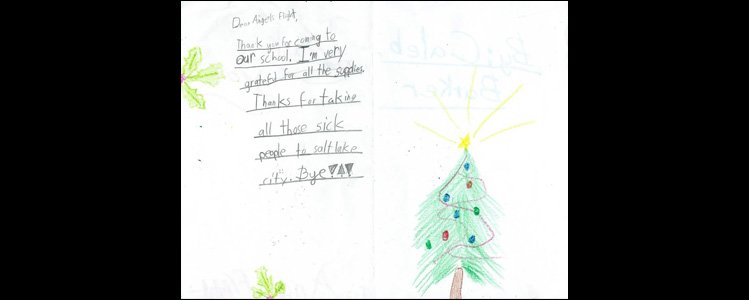 Dear Angels Flight,
Thank you for coming to
our school. I'm very
grateful for all the supplies.
Thanks for taking
all those sick
people to salt lake
city. Bye
By: Caleb
Barker